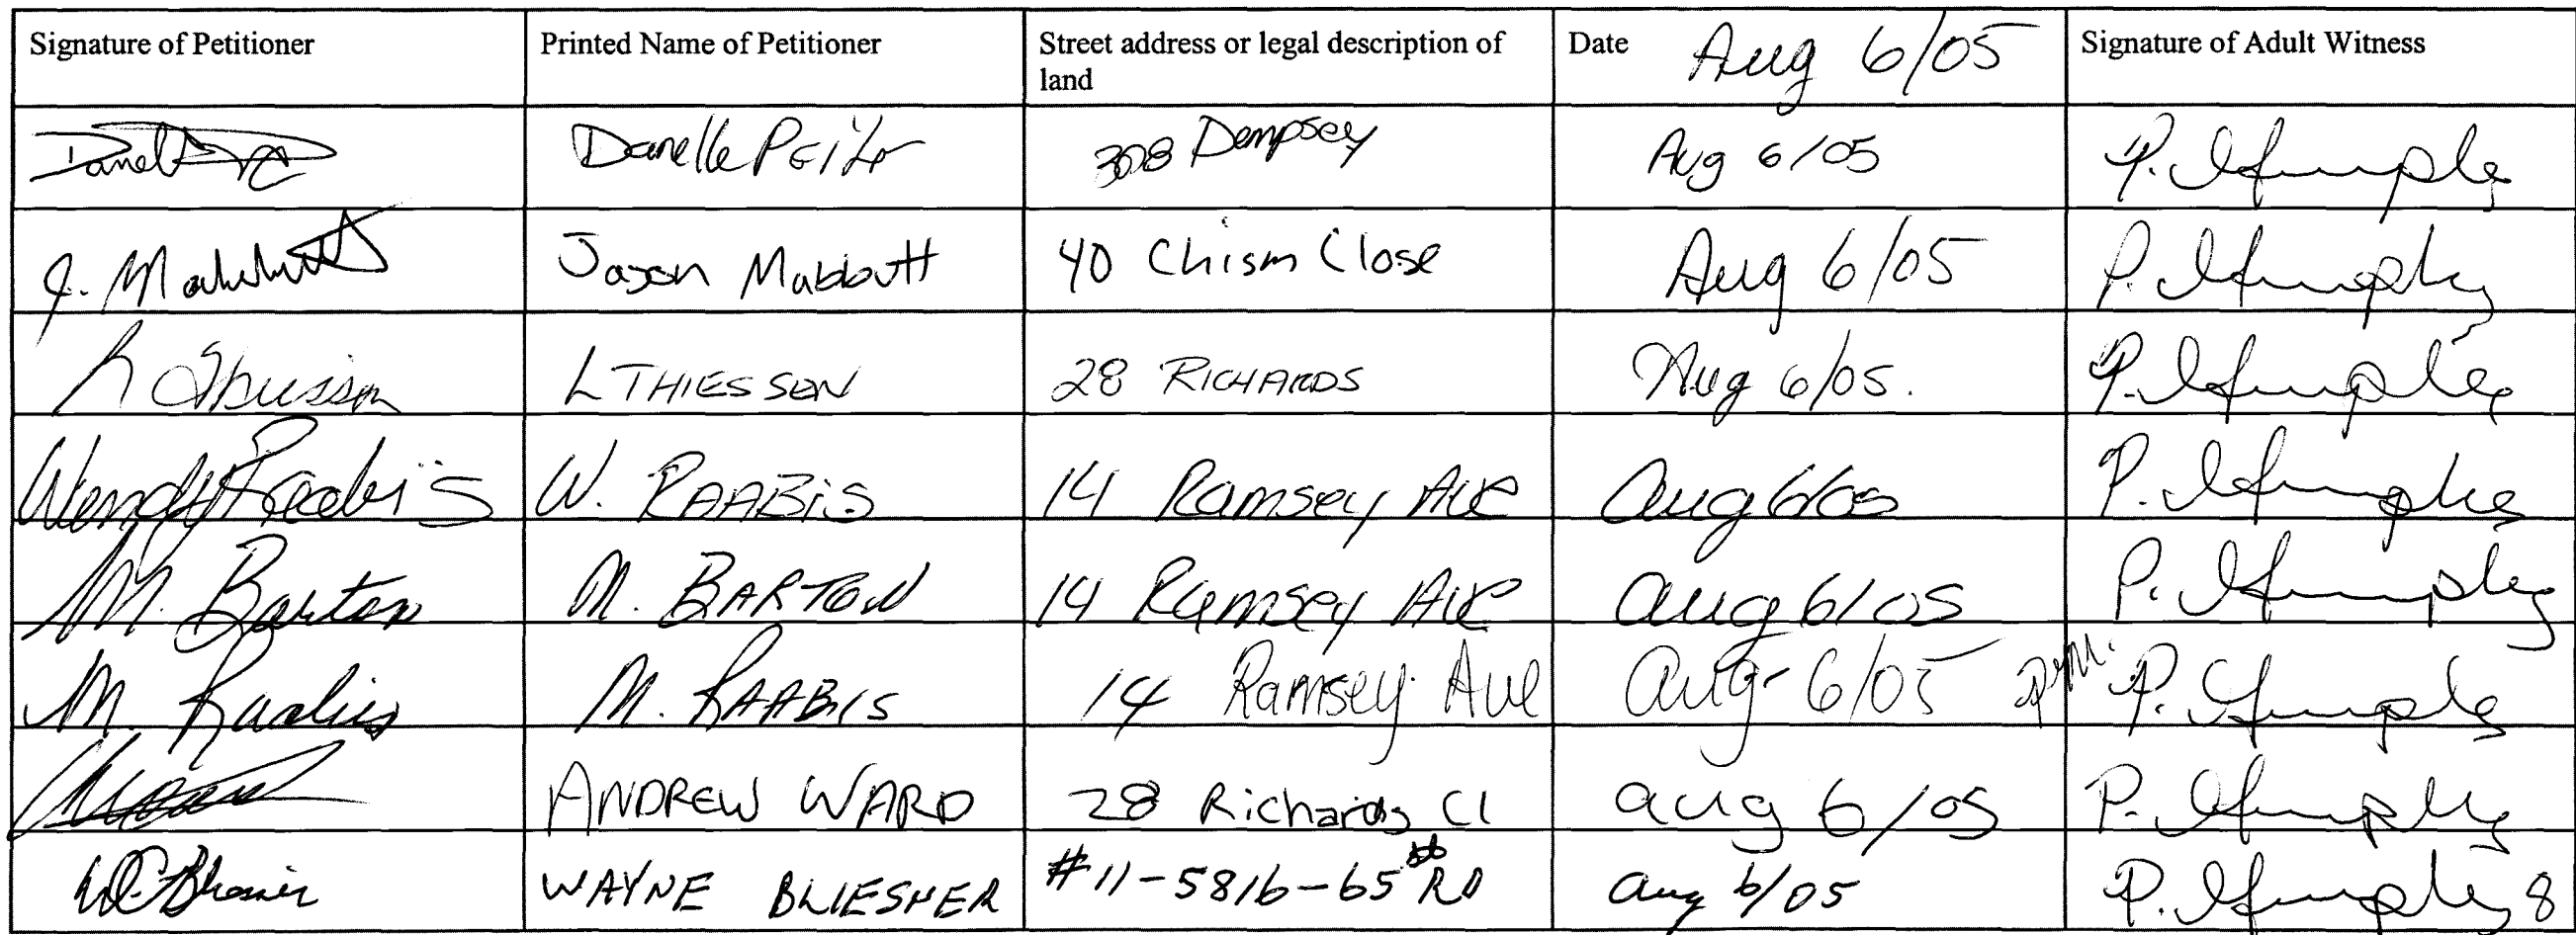 Signature of Petitioner Printed Name of Petitioner Street address or legal description of Date Aug 6/05 Signature of Adult Witness
land
Danelle Peiter 308 Dempsey Aug 6/05 P. Humphrey
J. Mabbutt Jason Mabbutt 40 Chism Close Aug 6/05 P. Humphrey
L Thiessen L THIESSEN 28 RICHARDS Aug 6/05. P. Humphrey
Wendy Raabis W. RAABiS 14 Ramsey Ave Aug 6/05 P. Humphrey
M. Barton M. BARTON 14 Ramsey Ave Aug 6/05 P. Humphrey
M. Raabis M. RAABIS 14 Ramsey Ave Aug 6/05 P. Humphrey
ANDREW WARD 28 Richards Cl Aug 6/05 P. Humphrey
WAYNE BLIESNER #11-5816-65 st RD Aug 6/05 P. Humphrey 8